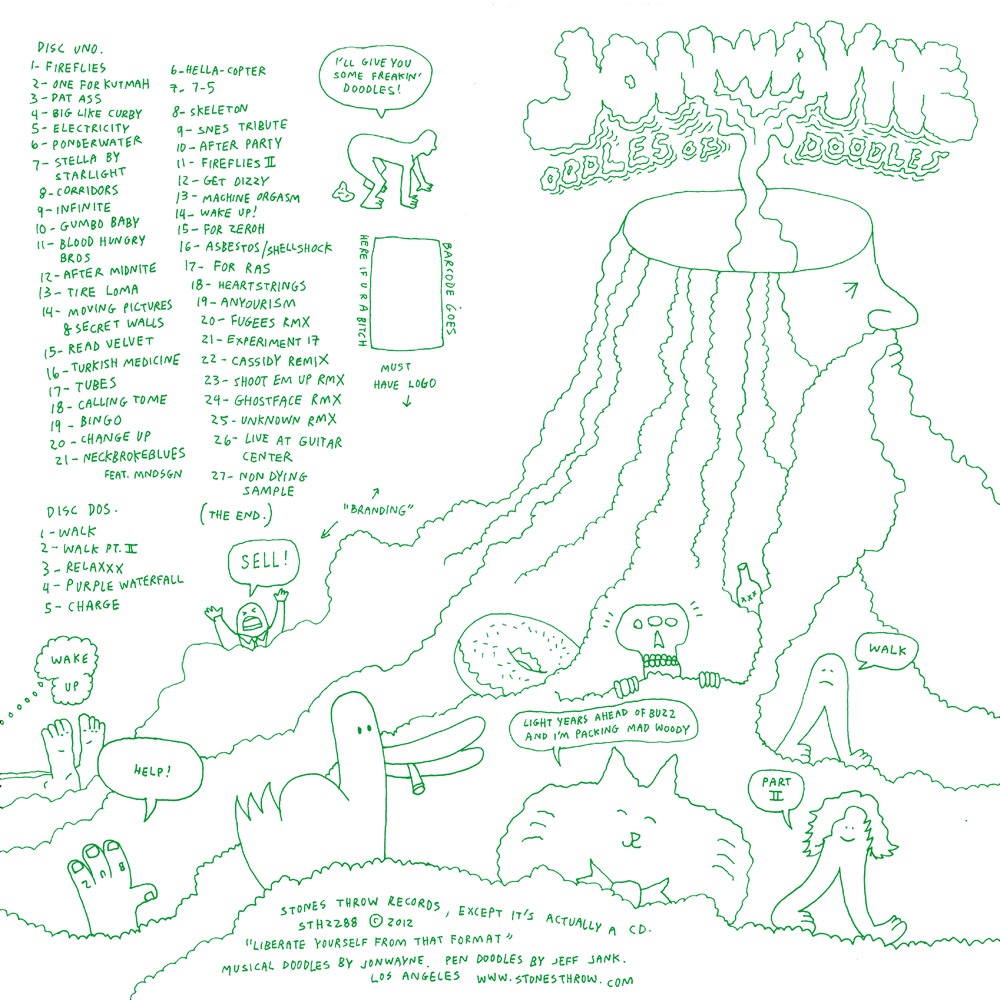 DISC UNO.
1- FIREFLIES
2- ONE FOR KUTMAH
3- PAT ASS
4- BIG LIKE CURBY
5- ELECTRICITY
6- PONDERWATER
7- STELLA BY
STARLIGHT
8- CORRIDORS
9- INFINITE
10- GUMBO BABY
11- BLOOD HUNGRY
BROS
12- AFTER MIDNITE
13- TIRE LOMA
14- MOVING PICTURES
& SECRET WALLS
15- READ VELVET
16- TURKISH MEDICINE
17- TUBES
18- CALLING TO ME
19- BINGO
20- CHANGE UP
21- NECKBROKEBLUES
FEAT. MNDSGN
DISC DOS.
1- WALK
2- WALK PT. II
3- RELAXXX
4- PURPLE WATERFALL
5- CHARGE
6- HELLA-COPTER
7- 7-5
8- SKELETON
9- SNES TRIBUTE
10- AFTER PARTY
11- FIREFLIES II
12- GET DIZZY
13- MACHINE ORGASM
14- WAKE UP!
15- FOR ZEROH
16- ASBESTOS/SHELLSHOCK
17- FOR RAS
18- HEARTSTRINGS
19- ANYOURISM
20- FUGEES RMX
21- EXPERIMENT 17
22- CASSIDY REMIX
23- SHOOT EM UP RMX
24- GHOSTFACE RMX
25- UNKNOWN RMX
26- LIVE AT GUITAR
CENTER
27- NON DYING
SAMPLE
(THE END.)
I'LL GIVE YOU
SOME FREAKIN'
DOODLES!
BARCODE GOES
HERE IF U R A BITCH
MUST
HAVE LOGO
"BRANDING"
SELL!
JONWAYNE
OODLES OF DOODLES
WAKE
UP
HELP!
2 n 8
XXX
LIGHT YEARS AHEAD OF BUZZ
AND I'M PACKING MAD WOODY
WALK
PART
II
STONES THROW RECORDS, EXCEPT IT'S ACTUALLY A CD.
STH2288 © 2012
"LIBERATE YOURSELF FROM THAT FORMAT"
MUSICAL DOODLES BY JONWAYNE. PEN DOODLES BY JEFF JANK.
LOS ANGELES WWW.STONESTHROW.COM